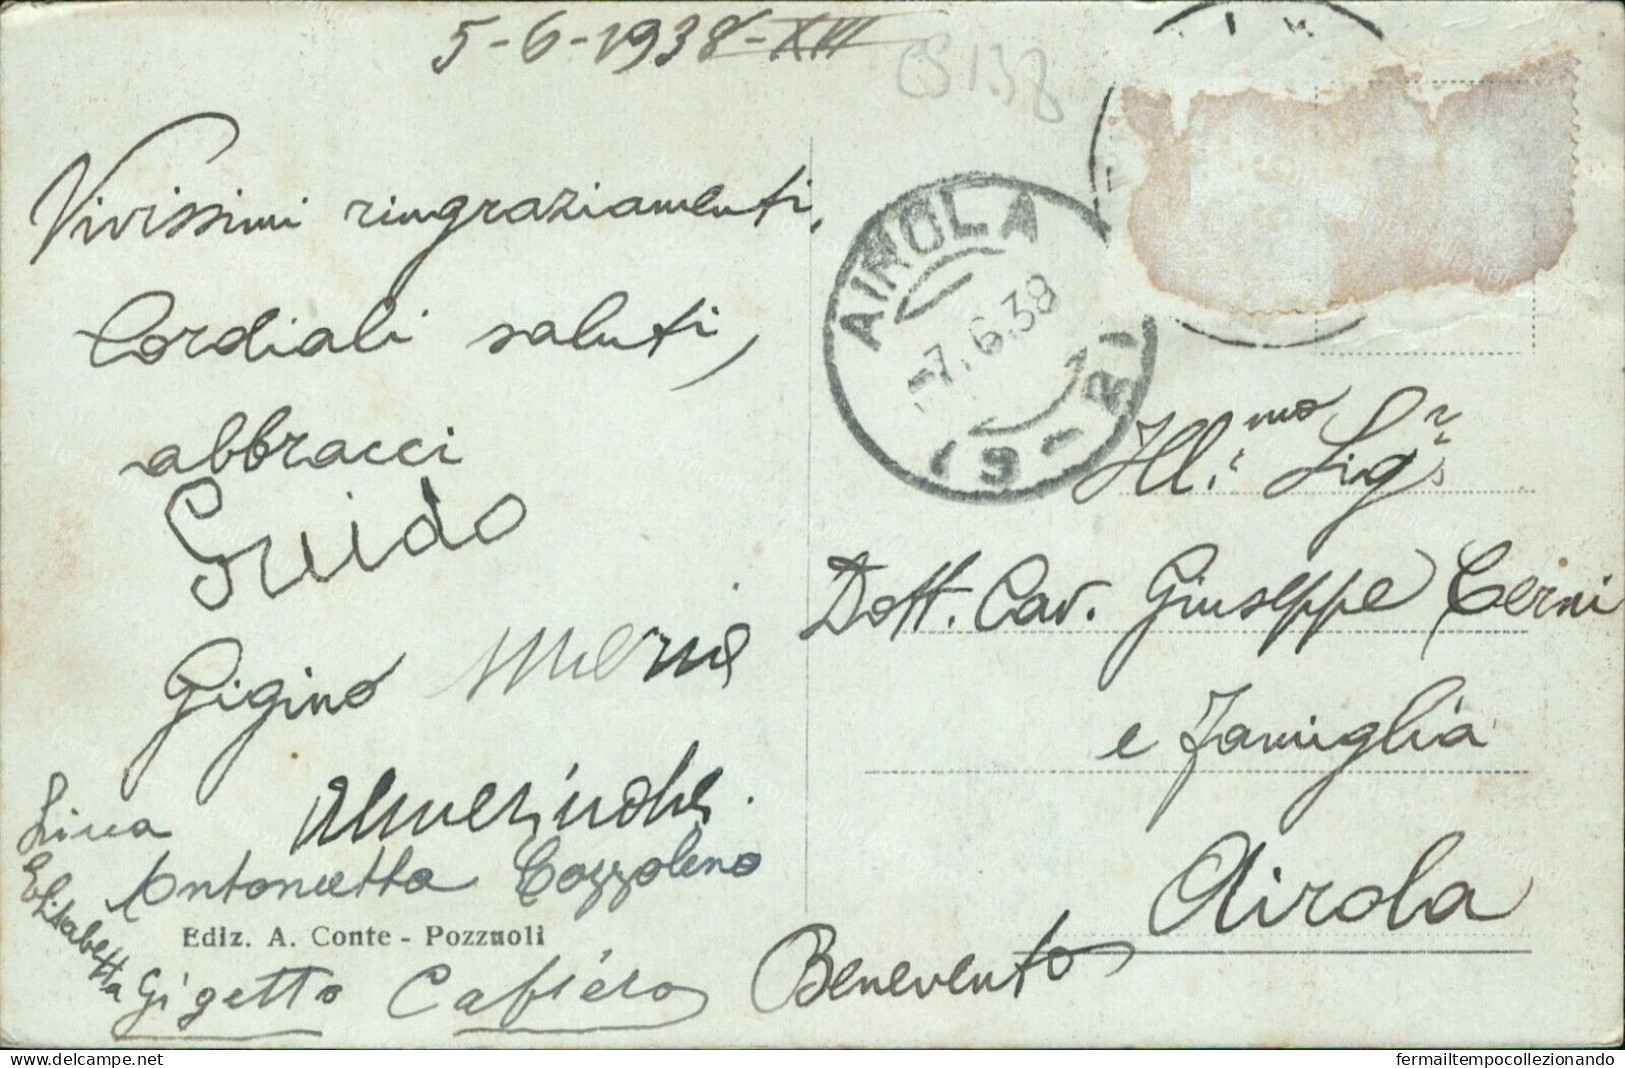 5-6-1938-XVI
CS138
Vivissimi ringraziamenti,
Cordiali saluti,
abbracci
Guido
Gigino
Linea
Antonietta Cozzolino
Elisabetta
Ediz. A. Conte - Pozzuoli
Gigetto Cafiero
AIROLA
-7.6.38
Ill.mo Sigr
Dott. Cav. Giuseppe Cerni
e famiglia
Airola
Benevento
delcampe.net
fermailtempocollezionando